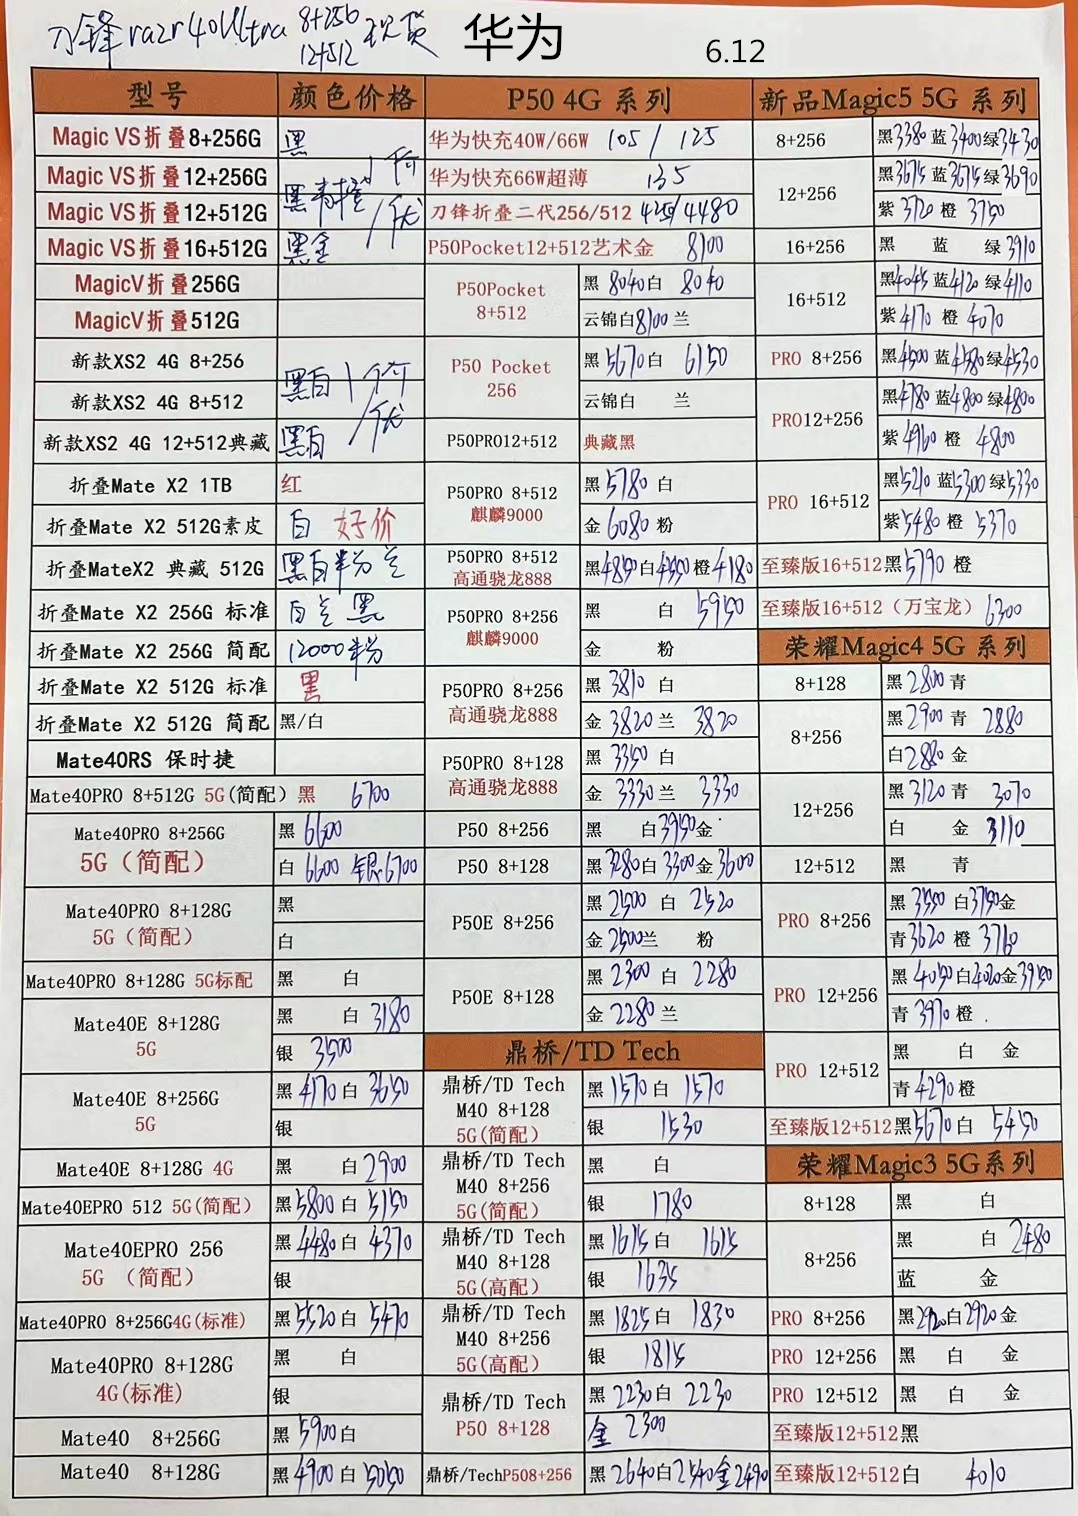 刀锋razr40Ultra 8+256 12+512 现货 华为 6.12
型号 颜色价格 P50 4G 系列 新品Magic5 5G 系列
Magic VS折叠8+256G 黑 华为快充40W/66W 105/125 8+256 黑3380 蓝3400 绿3430
Magic VS折叠12+256G 华为快充66W超薄 135 12+256 黑3675 蓝3675 绿3690
Magic VS折叠12+512G 黑青橙 刀锋折叠二代256/512 /4480 紫3720 橙3750
Magic VS折叠16+512G 黑金 P50Pocket12+512艺术金 8100 16+256 黑 蓝 绿3910
MagicV折叠256G P50Pocket 8+512 黑8040 白8040 16+512 黑4045 蓝4120 绿4110
MagicV折叠512G 云锦白8100 兰 紫4170 橙4070
新款XS2 4G 8+256 黑白 P50 Pocket 256 黑5670 白6150 PRO 8+256 黑4500 蓝4580 绿4530
新款XS2 4G 8+512 云锦白 兰 PRO12+256 黑4780 蓝4800 绿4800
新款XS2 4G 12+512典藏 黑白 P50PRO12+512 典藏黑 紫4960 橙4800
折叠Mate X2 1TB 红 P50PRO 8+512 麒麟9000 黑5780 白 PRO 16+512 黑5210 蓝5300 绿5330
折叠Mate X2 512G素皮 白 好价 金6080 粉 紫5480 橙5370
折叠MateX2 典藏 512G 黑白粉兰 P50PRO 8+512 高通骁龙888 黑4850 白4550 橙4180 至臻版16+512 黑5790 橙
折叠Mate X2 256G 标准 白兰 黑 P50PRO 8+256 麒麟9000 黑 白5950 至臻版16+512（万宝龙）6300
折叠Mate X2 256G 简配 12000粉 金 粉 荣耀Magic4 5G 系列
折叠Mate X2 512G 标准 黑 P50PRO 8+256 高通骁龙888 黑3810 白 8+128 黑2800 青
折叠Mate X2 512G 简配 黑/白 金3820 兰3820 8+256 黑2900 青2880
Mate40RS 保时捷 P50PRO 8+128 高通骁龙888 黑3350 白 白2880 金
Mate40PRO 8+512G 5G(简配) 黑 6700 金3330 兰3330 12+256 黑3120 青3070
Mate40PRO 8+256G 5G（简配） 黑6600 P50 8+256 黑 白3950 金 白 金3110
白6600 银6700 P50 8+128 黑3280 白3300 金3600 12+512 黑 青
Mate40PRO 8+128G 5G（简配） 黑 P50E 8+256 黑2500 白2520 PRO 8+256 黑3550 白3750 金
白 金2500 兰 粉 青3620 橙3760
Mate40PRO 8+128G 5G标配 黑 白 P50E 8+128 黑2300 白2280 PRO 12+256 黑4050 白4020 金3950
Mate40E 8+128G 5G 黑 白3180 金2280 兰 青3970 橙
银3500 鼎桥/TD Tech PRO 12+512 黑 白 金
Mate40E 8+256G 5G 黑4170 白3650 鼎桥/TD Tech M40 8+128 5G(简配) 黑1570 白1570 青4290 橙
银 银1530 至臻版12+512 黑5670 白5450
Mate40E 8+128G 4G 黑 白2900 鼎桥/TD Tech M40 8+256 5G(简配) 黑 白 荣耀Magic3 5G系列
Mate40EPRO 512 5G(简配) 黑5800 白5150 银1780 8+128 黑 白
Mate40EPRO 256 5G（简配） 黑4480 白4370 鼎桥/TD Tech M40 8+128 5G(高配) 黑1615 白1615 8+256 黑 白2480
银 银1635 蓝 金
Mate40PRO 8+256G4G(标准) 黑5520 白5470 鼎桥/TD Tech M40 8+256 5G(高配) 黑1825 白1830 PRO 8+256 黑2920 白2920 金
Mate40PRO 8+128G 4G(标准) 黑 白 银1815 PRO 12+256 黑 白 金
银 鼎桥/TD Tech P50 8+128 黑2230 白2230 PRO 12+512 黑 白 金
Mate40 8+256G 黑5900 白 金2300 至臻版12+512 黑
Mate40 8+128G 黑4900 白5050 鼎桥/TechP508+256 黑2640 白2540 金2490 至臻版12+512 白 4010